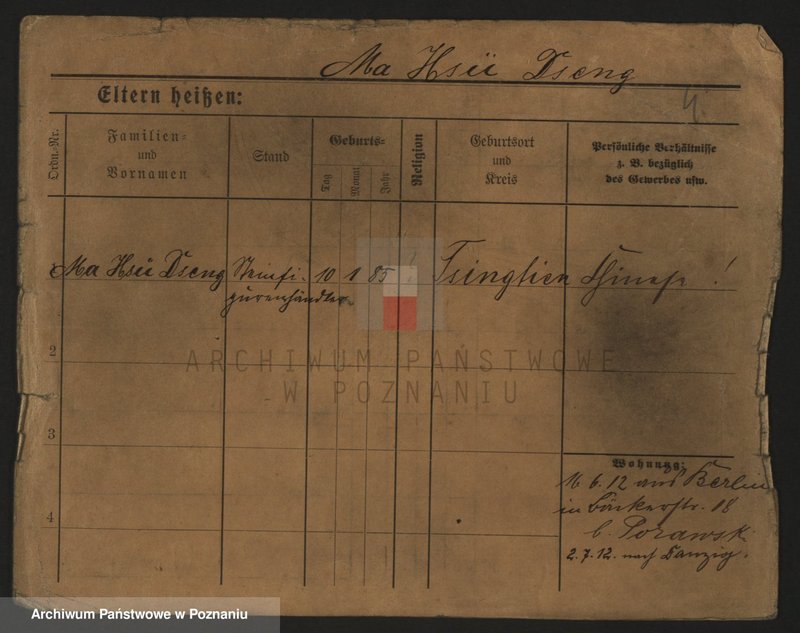 Ma Hsü Dseng
4.
Eltern heißen:
Ordn.-Nr.
Familien-
und
Vornamen
Stand
Geburts-
Tag
Monat
Jahr
Religion
Geburtsort
und
Kreis
Persönliche Verhältnisse
z. B. bezüglich
des Gewerbes usw.
Ma Hsü Dseng Steinfi- 10 1 85 Tsingtien Chinese !
gurenhändler
2
ARCHIWUM PAŃSTWOWE
W POZNANIU
3
Wohnung:
16 6. 12 aus Berlin
in Bäckerstr. 18
4
b. Porawsk
2. 7. 12. nach Danzig.
Archiwum Państwowe w Poznaniu